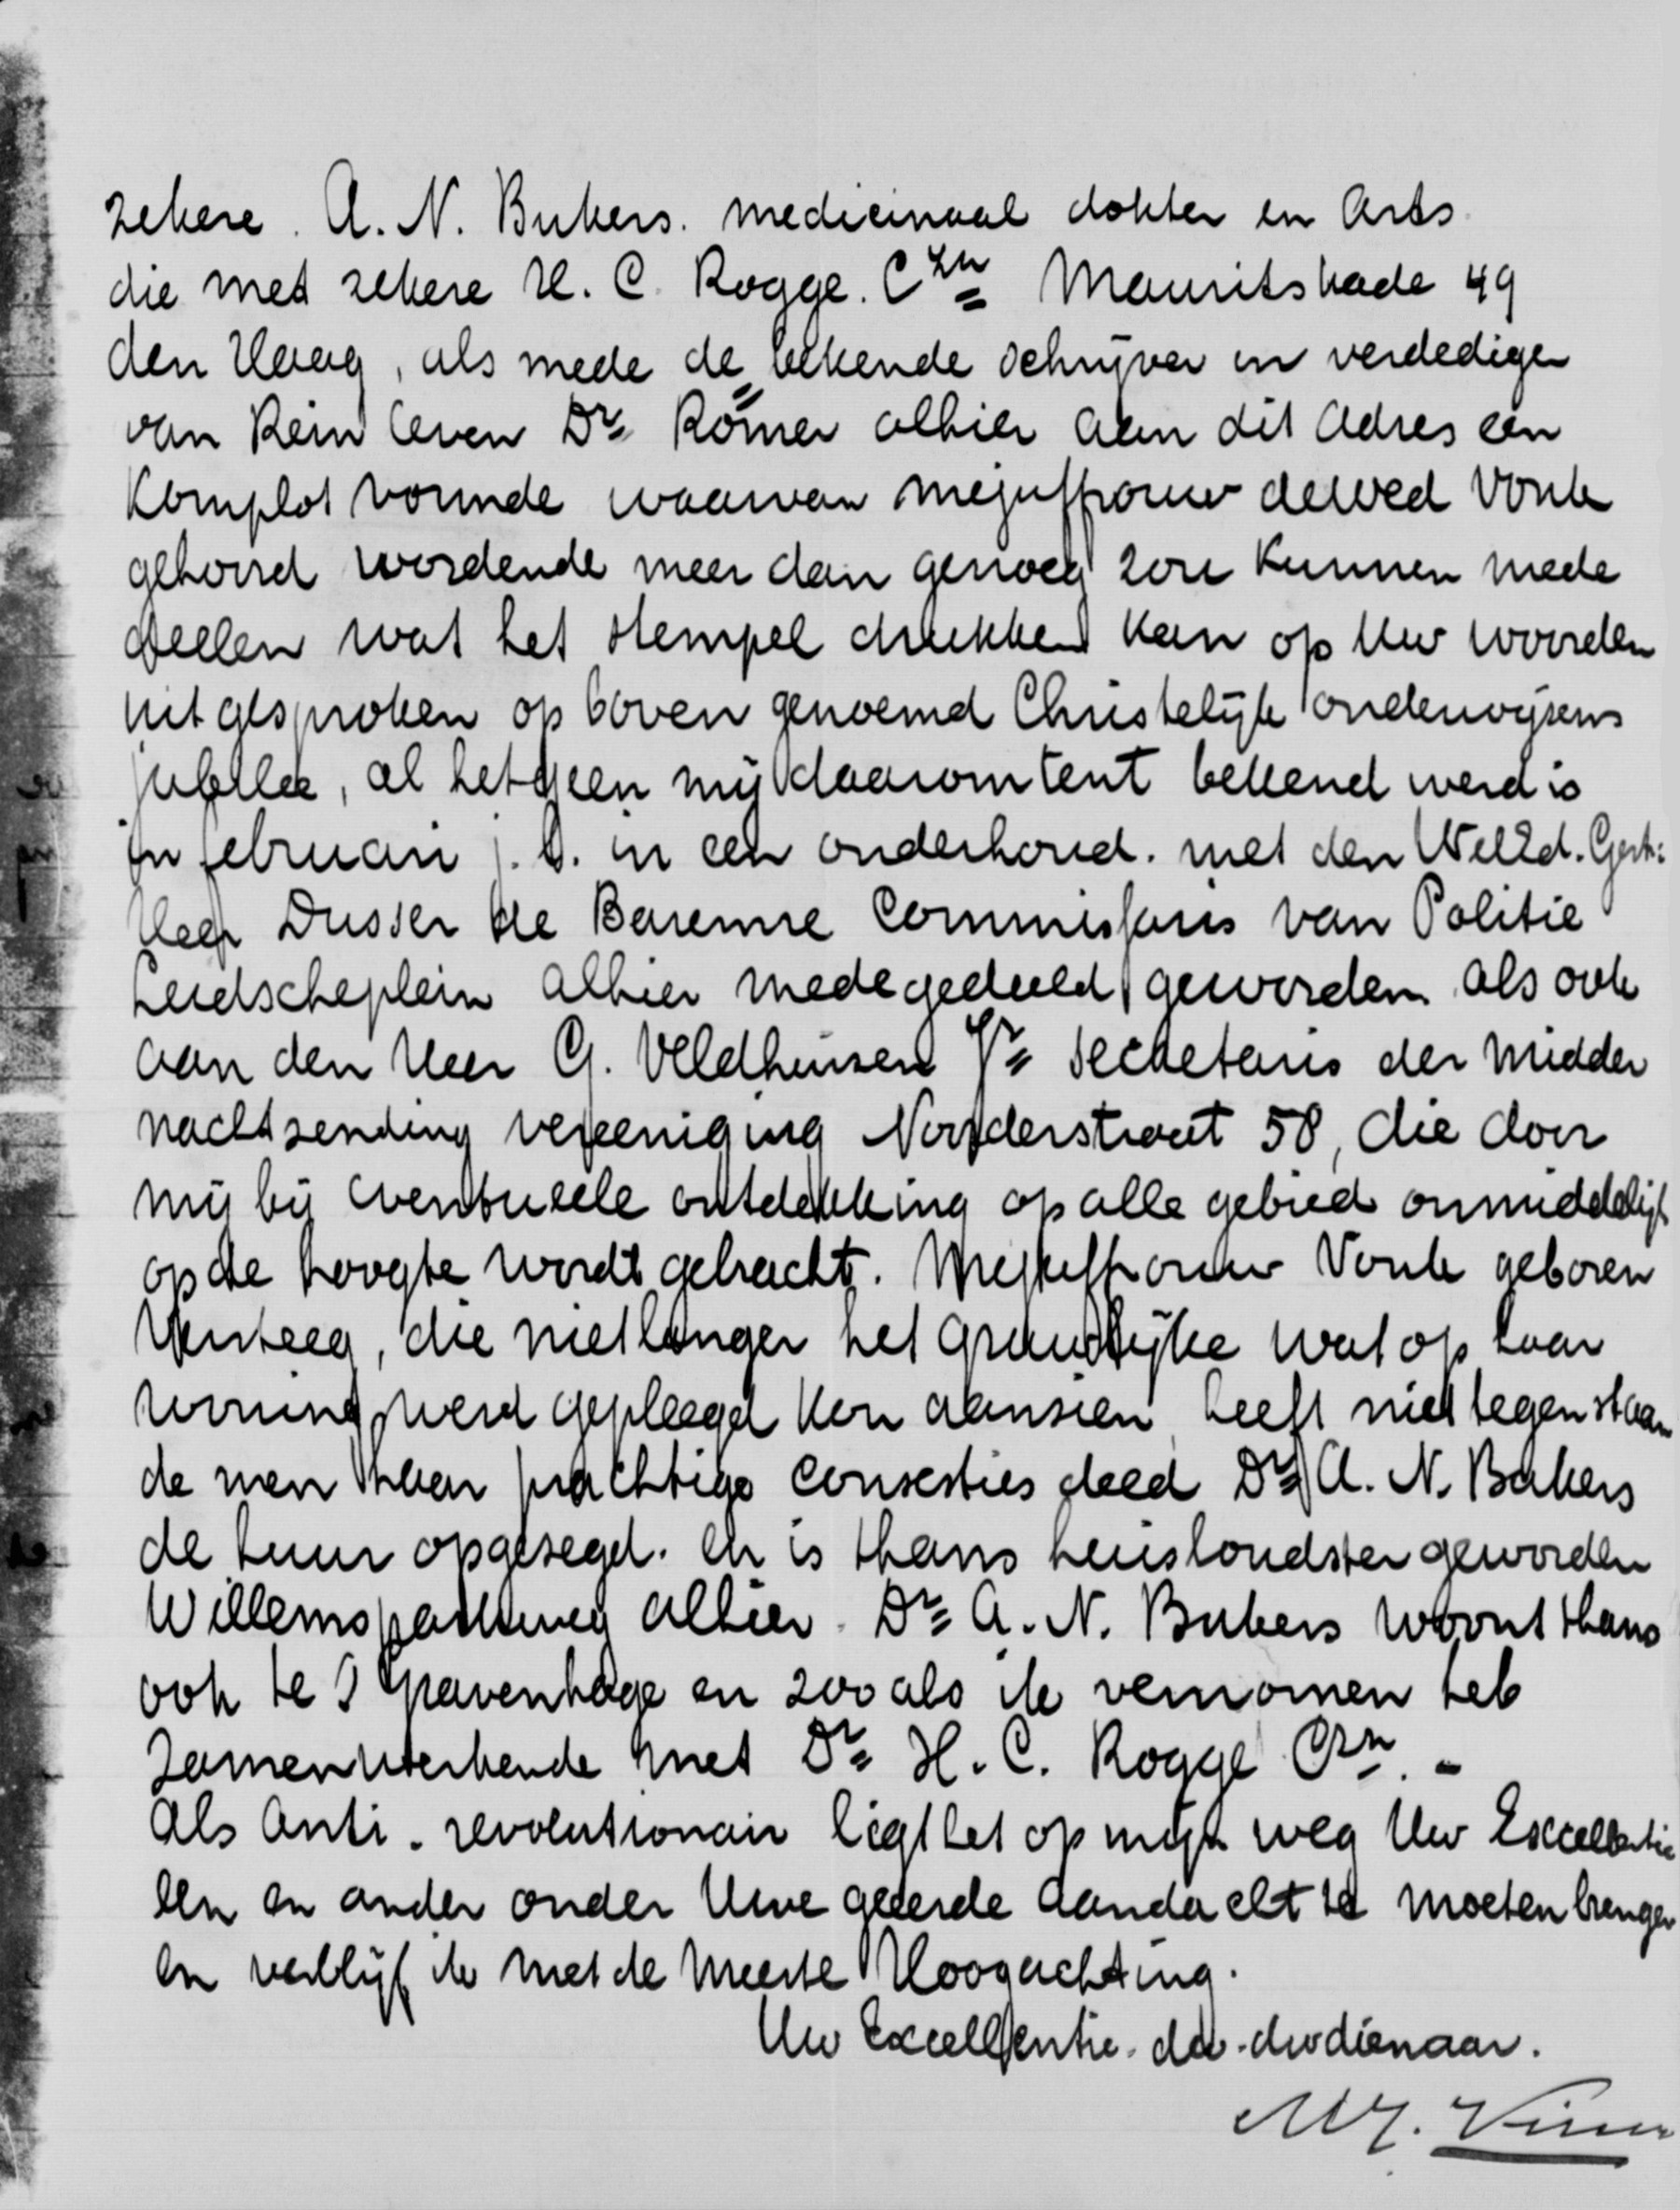 zekere. A. N. Bukers. medicinaal dokter en Arts
die met zekere H. C. Rogge. Czn Mauritskade 49
den Haag, als mede de bekende schrijver en verdediger
van Rein leven Dr Römer alhier aan dit adres een
Komplot vormde waarvan mejuffrouw de wed Vonk
gehoord wordende meer dan genoeg zou kunnen mede
deelen wat het stempel drukken kan op Uw woorden
uitgesproken op boven genoemd Christelijk onderwijzers
jubilee, al hetgeen mij daaromtent bekend werd is
in februari j.l. in een onderhoud. met den WelEd. Gestr:
Heer Dusser de Barenne Commissaris van Politie
Leidscheplein alhier medegedeeld geworden. als ook
aan den Heer G. Veldhuisen Jr Secretaris der Midder
nachtzending vereeniging Noorderstraat 58, die door
mij bij eventueele ontdekking op alle gebied onmiddelijk
op de hoogte wordt gebracht. Mejuffrouw Vonk geboren
Versteeg, die niet langer het gruwelijke wat op haar
woning werd gepleegd kon aanzien, heeft niettegenstaan
de men haar prachtige consesties deed Dr A. N. Bukers
de huur opgezegd. en is thans huishoudster geworden
Willemsparkweg alhier. Dr A. N. Bukers woont thans
ook te S Gravenhage en zooals ik vernomen heb
Zamenwerkende met Dr H. C. Rogge Czn. -
Als Anti-revolutionair ligt het op mijn weg Uw Excellentie
een en ander onder Uwe geëerde aandacht te moeten brengen
en verblijf ik met de meeste Hoogachting.
Uw Excellentie. dw. dw dienaar.